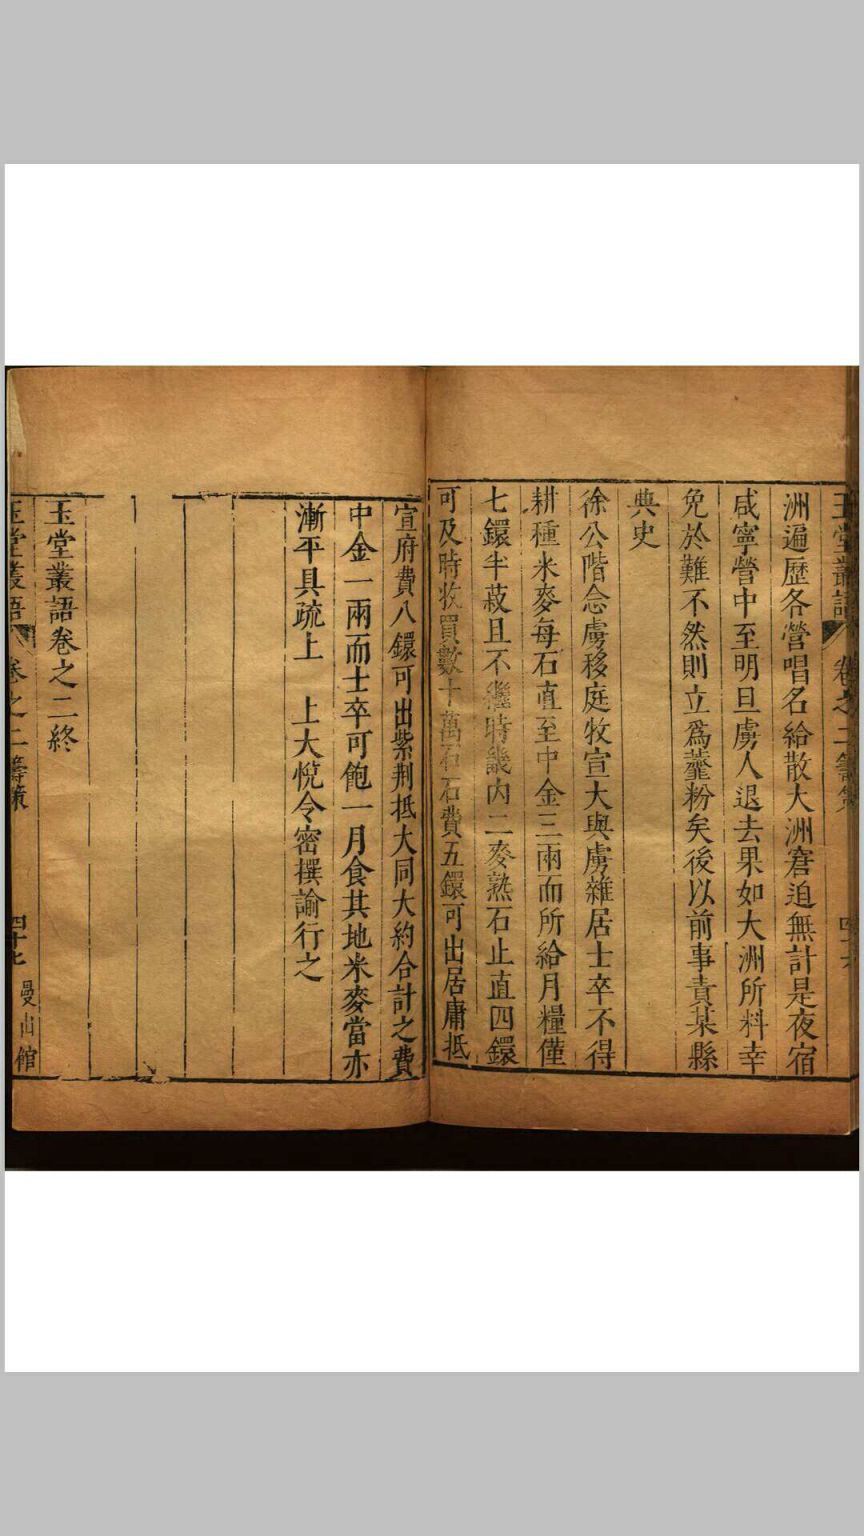 玉堂叢語 卷之二籌策
洲遍歷各營唱名給散大洲窘迫無計是夜宿
咸寧營中至明旦虜人退去果如大洲所料幸
免於難不然則立爲虀粉矣後以前事責某縣
典史
徐公階念虜移庭牧宣大與虜雜居士卒不得
耕種米麥每石直至中金三兩而所給月糧僅
七鐶半菽且不繼時畿内二麥熟石止直四鐶
可及時收買數十萬石石費五鐶可出居庸抵
宣府費八鐶可出紫荆抵大同大約合計之費
中金一兩而士卒可飽一月食其地米麥當亦
漸平具疏上 上大悅令密撰諭行之
玉堂叢語卷之二終
玉堂叢語 卷之二籌策 四十七 曼山館